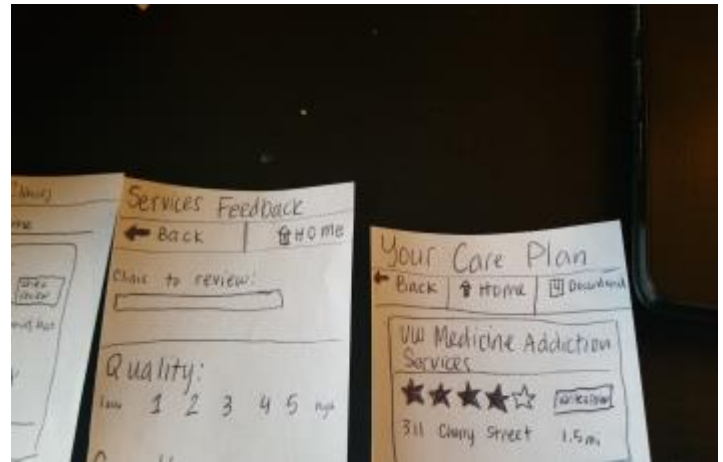 Services Feedback
Back Home
Clinic to review:
Quality:
low 1 2 3 4 5 high
Your Care Plan
Back Home Download
UW Medicine Addiction
Services
write review
311 Cherry Street 1.5 mi
write
review